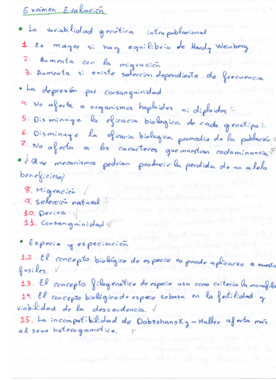 Exámen Evolución
• La variabilidad genética intrapoblacional
1. Es mayor si hay equilibrio de Hardy Weinberg
2. Aumenta con la migración
3. Aumenta si existe selección dependiente de frecuencia
• La depresión por consanguinidad
4. No afecta a organismos haploides ni diploides
5. Disminuye la eficacia biológica de cada genotipo
6. Disminuye la eficacia biológica promedio de la población
7. No afecta a los caracteres que muestran codominancia
• ¿Que mecanismo podrian producir la perdida de un alelo
beneficioso?
8. Migración
9. Selección natural
10. Deriva
11. Consanguinidad
• Especie y especiación
12. El concepto biológico de especie no puede aplicarse a
fosiles.
13. El concepto filogenético de especie usa como criterio la monofilia
14. El concepto biológico de especie se basa en la fertilidad y
viabilidad de la descendencia.
15. La incompatibilidad de Dobtshansky-Muller afecta más
al sexo heterogamético.